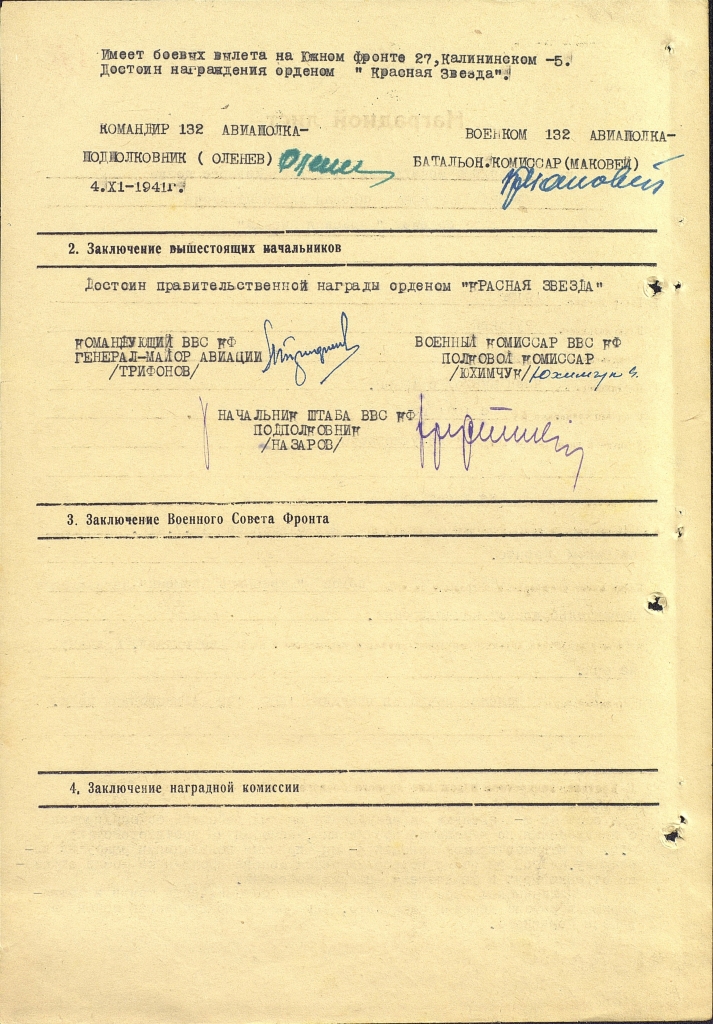 Имеет боевых вылета на Южном фронте 27,Калининском -5.
Достоин награждения орденом " Красная Звезда".
КОМАНДИР 132 АВИАПОЛКА-
ПОДПОЛКОВНИК ( ОЛЕНЕВ)
4.XI-1941г.
ВОЕНКОМ 132 АВИАПОЛКА-
БАТАЛЬОН.КОМИССАР(МАКОВЕЙ)
Маковей
2. Заключение вышестоящих начальников
Достоин правительственной награды орденом "КРАСНАЯ ЗВЕЗДА"
КОМАНДУЮЩИЙ ВВС КФ
ГЕНЕРАЛ-МАЙОР АВИАЦИИ
/ТРИФОНОВ/
ВОЕННЫЙ КОМИССАР ВВС КФ
ПОЛКОВОЙ КОМИССАР
/ЮХИМЧУК/ Юхимчук
НАЧАЛЬНИК ШТАБА ВВС КФ
ПОДПОЛКОВНИК
/НАЗАРОВ/
3. Заключение Военного Совета Фронта
4. Заключение наградной комиссии